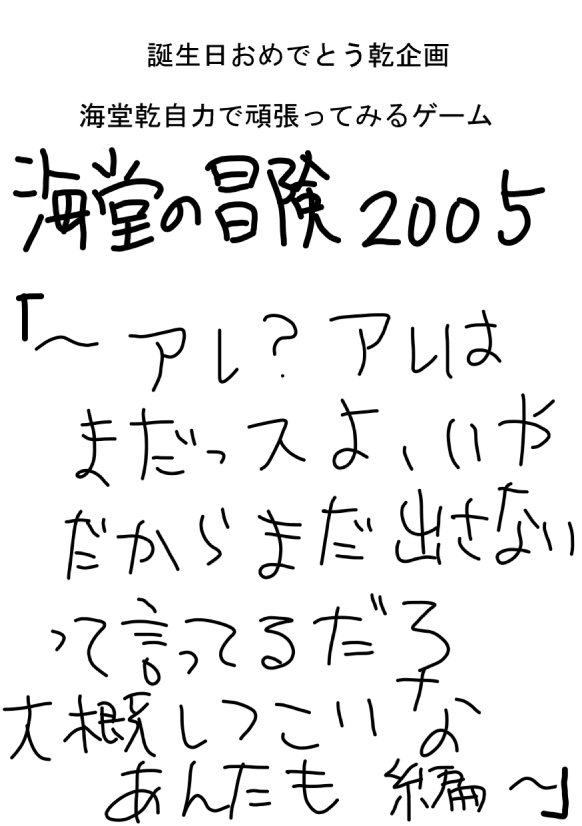 誕生日おめでとう乾企画
海堂乾自力で頑張ってみるゲーム
海堂の冒険2005
「～アレ？アレは
まだっスよ、いや
だからまだ出さない
って言ってるだろ
大概しつこいな
あんたも 編～」